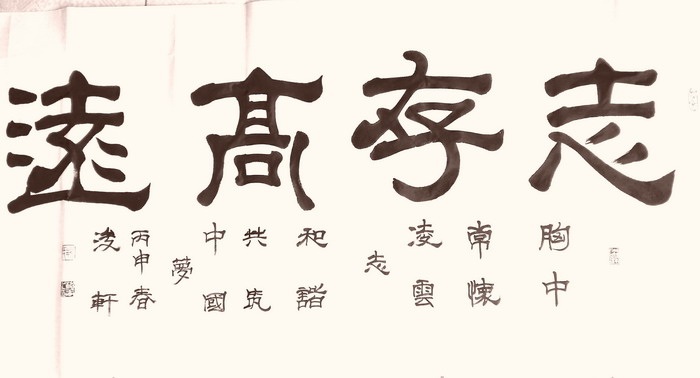 志存高遠
胸中
常懷
凌雲
志
和諧
共筑
中國
夢
丙申春
浚軒